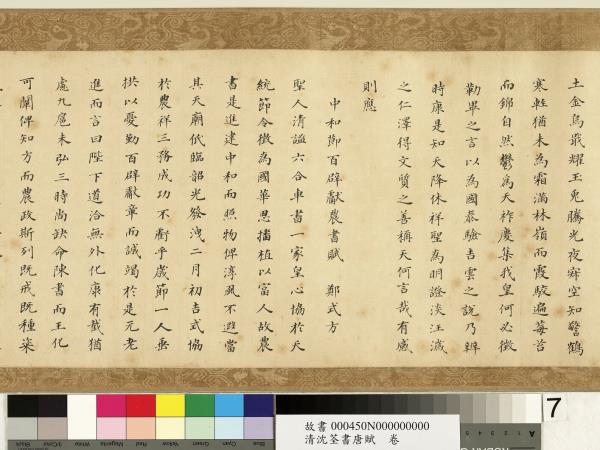 土金烏戢耀玉兎騰光夜寂空知警鶴
寒輕猶未為霜滿林嶺而霞駮遍莓苔
而錦自然鬱為天祚慶集我皇何必徵
勒畢之言以為國泰驗吉雲之說乃辨
時康是知天降休祥聖為明證淡汪濊
之仁澤得文質之善稱天何言哉有感
則應
中和節百辟獻農書賦 鄭式方
聖人清謐六合車書一家皇心協於天
統節令徵為國華思播植以富人故農
書是進建中和而照物俾淳風不遐當
其天廟低臨韶光發洩二月初吉式協
於農祥三務成功不愆乎歲節一人垂
拱以憂勤百辟獻章而誠竭於是元老
進而言曰陛下道洽無外化康有截猶
處九扈未弘三時尚缺命陳書而王化
可闡俾知方而農政斯列既戒既種染
7
故書 000450N000000000
清沈荃書唐賦 卷
Black
3/Color
White
Magenta
Red
Yellow
Green
Cyan
Blue
A
1
2
3
4
5